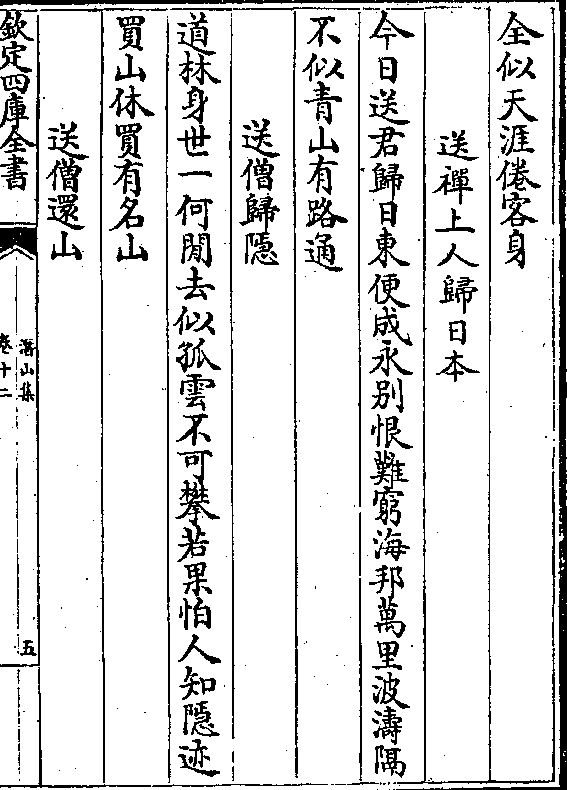 全似天涯倦客身
送禪上人歸日本
今日送君歸日東便成永别恨難窮海邦萬里波濤隔
不似青山有路通
送僧歸隱
道林身世一何閒去似孤雲不可攀若果怕人知隱迹
買山休買有名山
送僧還山
欽定四庫全書
潛山集
卷十二
五